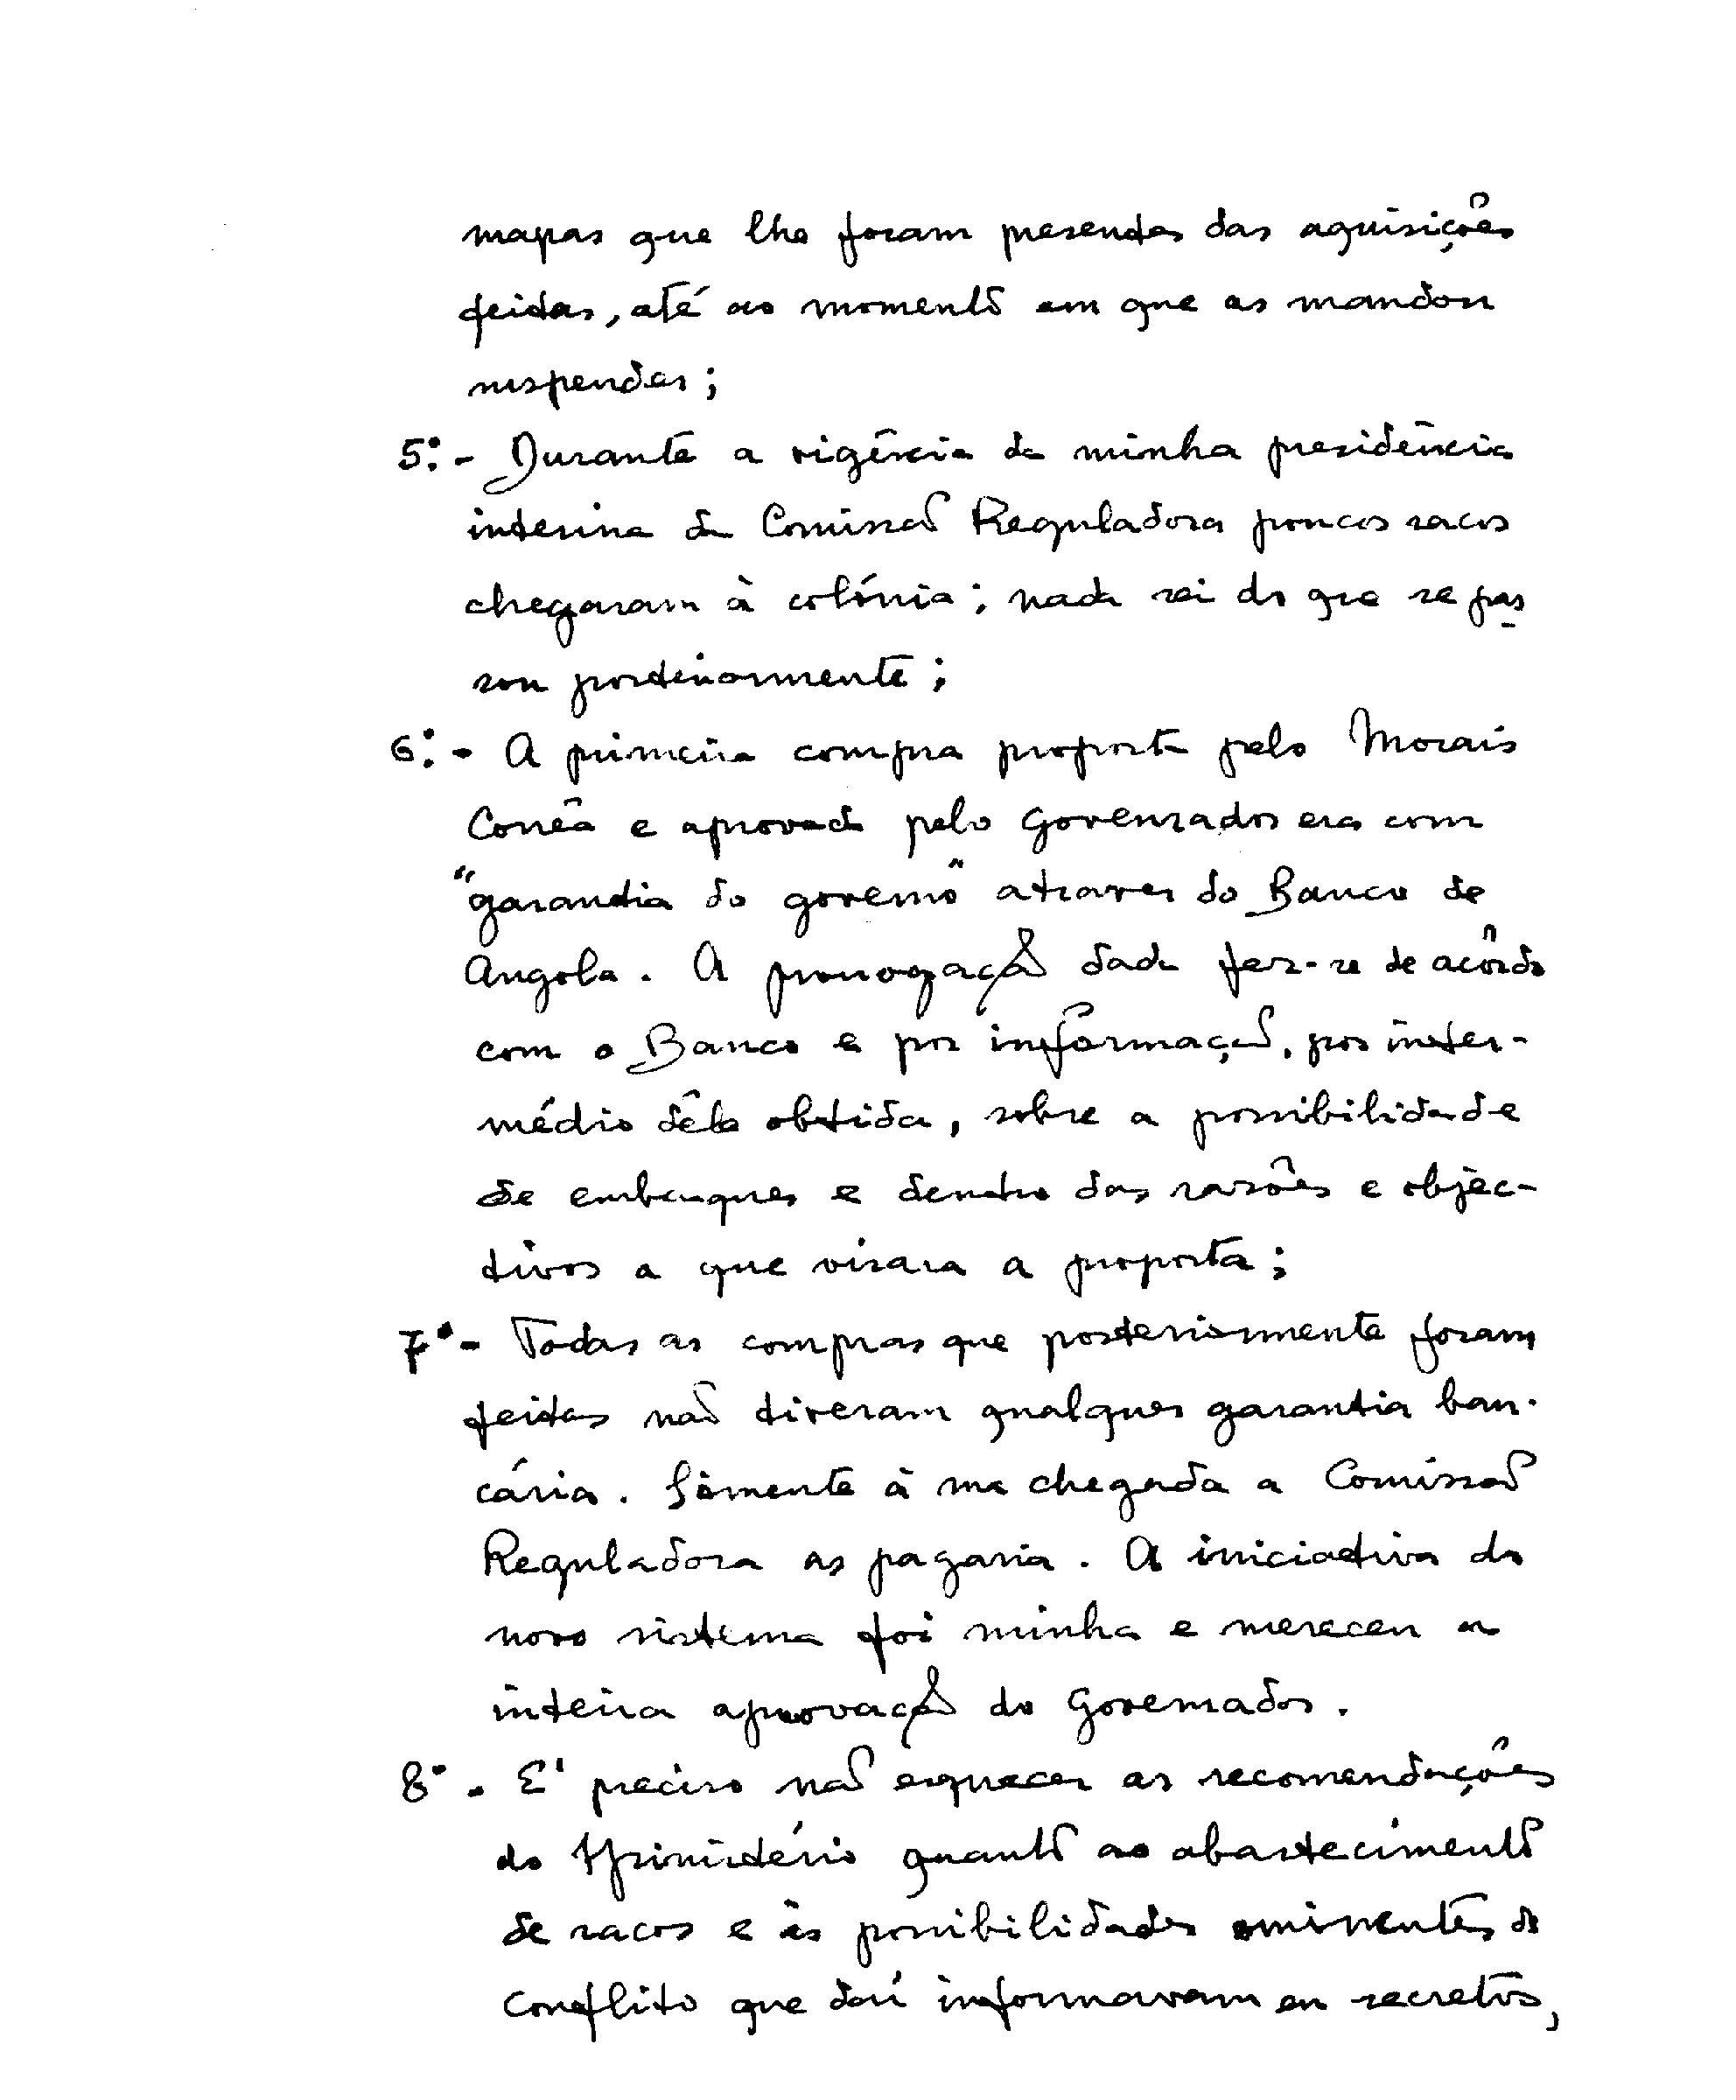 mapas que lhe foram presentes das aquisições
feitas, até ao momento em que as mandou
suspender;
5º - Durante a vigência da minha presidência
interina da Comissão Reguladora poucos sacos
chegaram à colónia; nada sei do que se pas
sou posteriormente;
6º - A primeira compra proposta pelo Morais
Corrêa e aprovada pelo Governador era com
"garantia do governo" atravez do Banco de
Angola. A prorrogação dada fez-se de acôrdo
com o Banco e por informação, por inter-
médio dêle obtida, sobre a possibilidade
de embarques e dentro das razões e objec-
tivos a que visara a proposta;
7º - Todas as compras que posteriormente foram
feitas não tiveram qualquer garantia ban-
cária. Sòmente à sua chegada a Comissão
Reguladora as pagaria. A iniciativa do
novo sistema foi minha e mereceu a
inteira aprovação do Governador.
8º - E' preciso não esquecer as recomendações
do Ministério quanto ao abastecimento
de sacos e às possibilidades eminentes de
conflito que daí informavam em secretos,